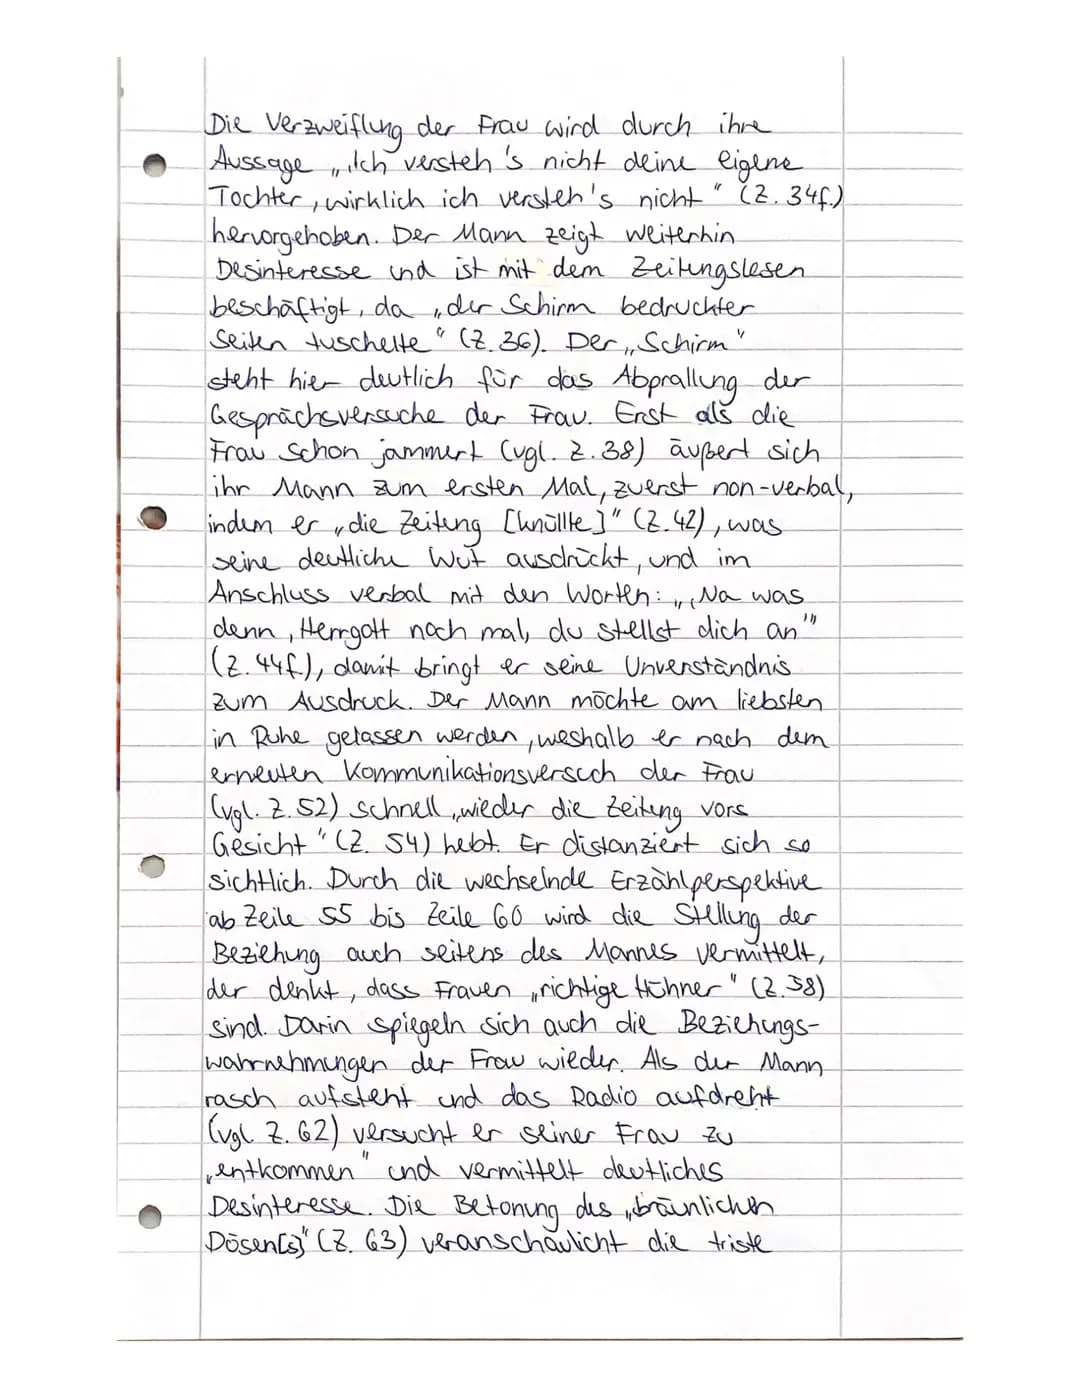 Die Verzweiflung der Frau wird durch ihre
Aussage „‚Ich versteh's nicht deine eigene
Tochter, wirklich ich versteh's nicht" (Z. 34f.)
hervorgehoben. Der Mann zeigt weiterhin
Desinteresse und ist mit dem Zeitungslesen
beschäftigt, da „der Schirm bedruckter
Seiten tuschelte" (Z. 36). Der „Schirm"
steht hier deutlich für das Abprallung der
Gesprächsversuche der Frau. Erst als die
Frau schon jammert (vgl. Z. 38) äußert sich
ihr Mann zum ersten Mal, zuerst non-verbal,
indem er „die Zeitung [knüllte]" (Z. 42), was
seine deutliche Wut ausdrückt, und im
Anschluss verbal mit den Worten: „‚Na was
denn, Herrgott noch mal, du stellst dich an'"
(Z. 44f.), damit bringt er seine Unverständnis
zum Ausdruck. Der Mann möchte am liebsten
in Ruhe gelassen werden, weshalb er nach dem
erneuten Kommunikationsversuch der Frau
(vgl. Z. 52) schnell „wieder die Zeitung vors
Gesicht" (Z. 54) hebt. Er distanziert sich so
sichtlich. Durch die wechselnde Erzählperspektive
ab Zeile 55 bis Zeile 60 wird die Stellung der
Beziehung auch seitens des Mannes vermittelt,
der denkt, dass Frauen „richtige Hühner" (Z. 58)
sind. Darin spiegeln sich auch die Beziehungs-
wahrnehmungen der Frau wieder. Als der Mann
rasch aufsteht und das Radio aufdreht
(vgl. Z. 62) versucht er seiner Frau zu
„entkommen" und vermittelt deutliches
Desinteresse. Die Betonung des „bräunlichen
Dösen[s]" (Z. 63) veranschaulicht die triste